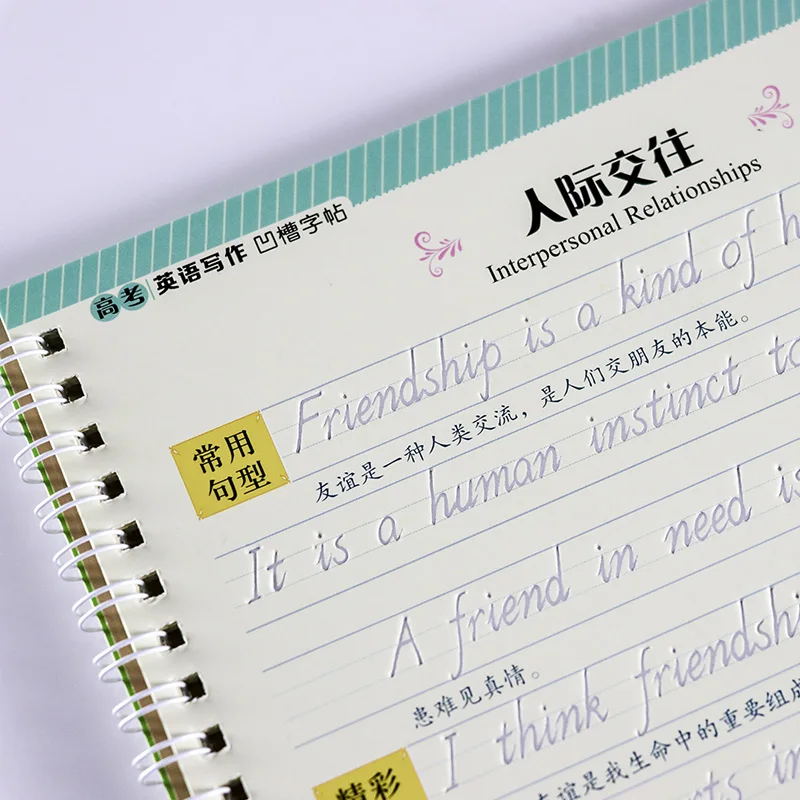 高考 英语写作 凹槽字帖
人际交往
Interpersonal Relationships
常用
句型
Friendship is a kind of
友谊是一种人类交流，是人们交朋友的本能。
It is a human instinct
A friend in need
患难见真情。
I think
友谊是我生命中的重要组成
精彩